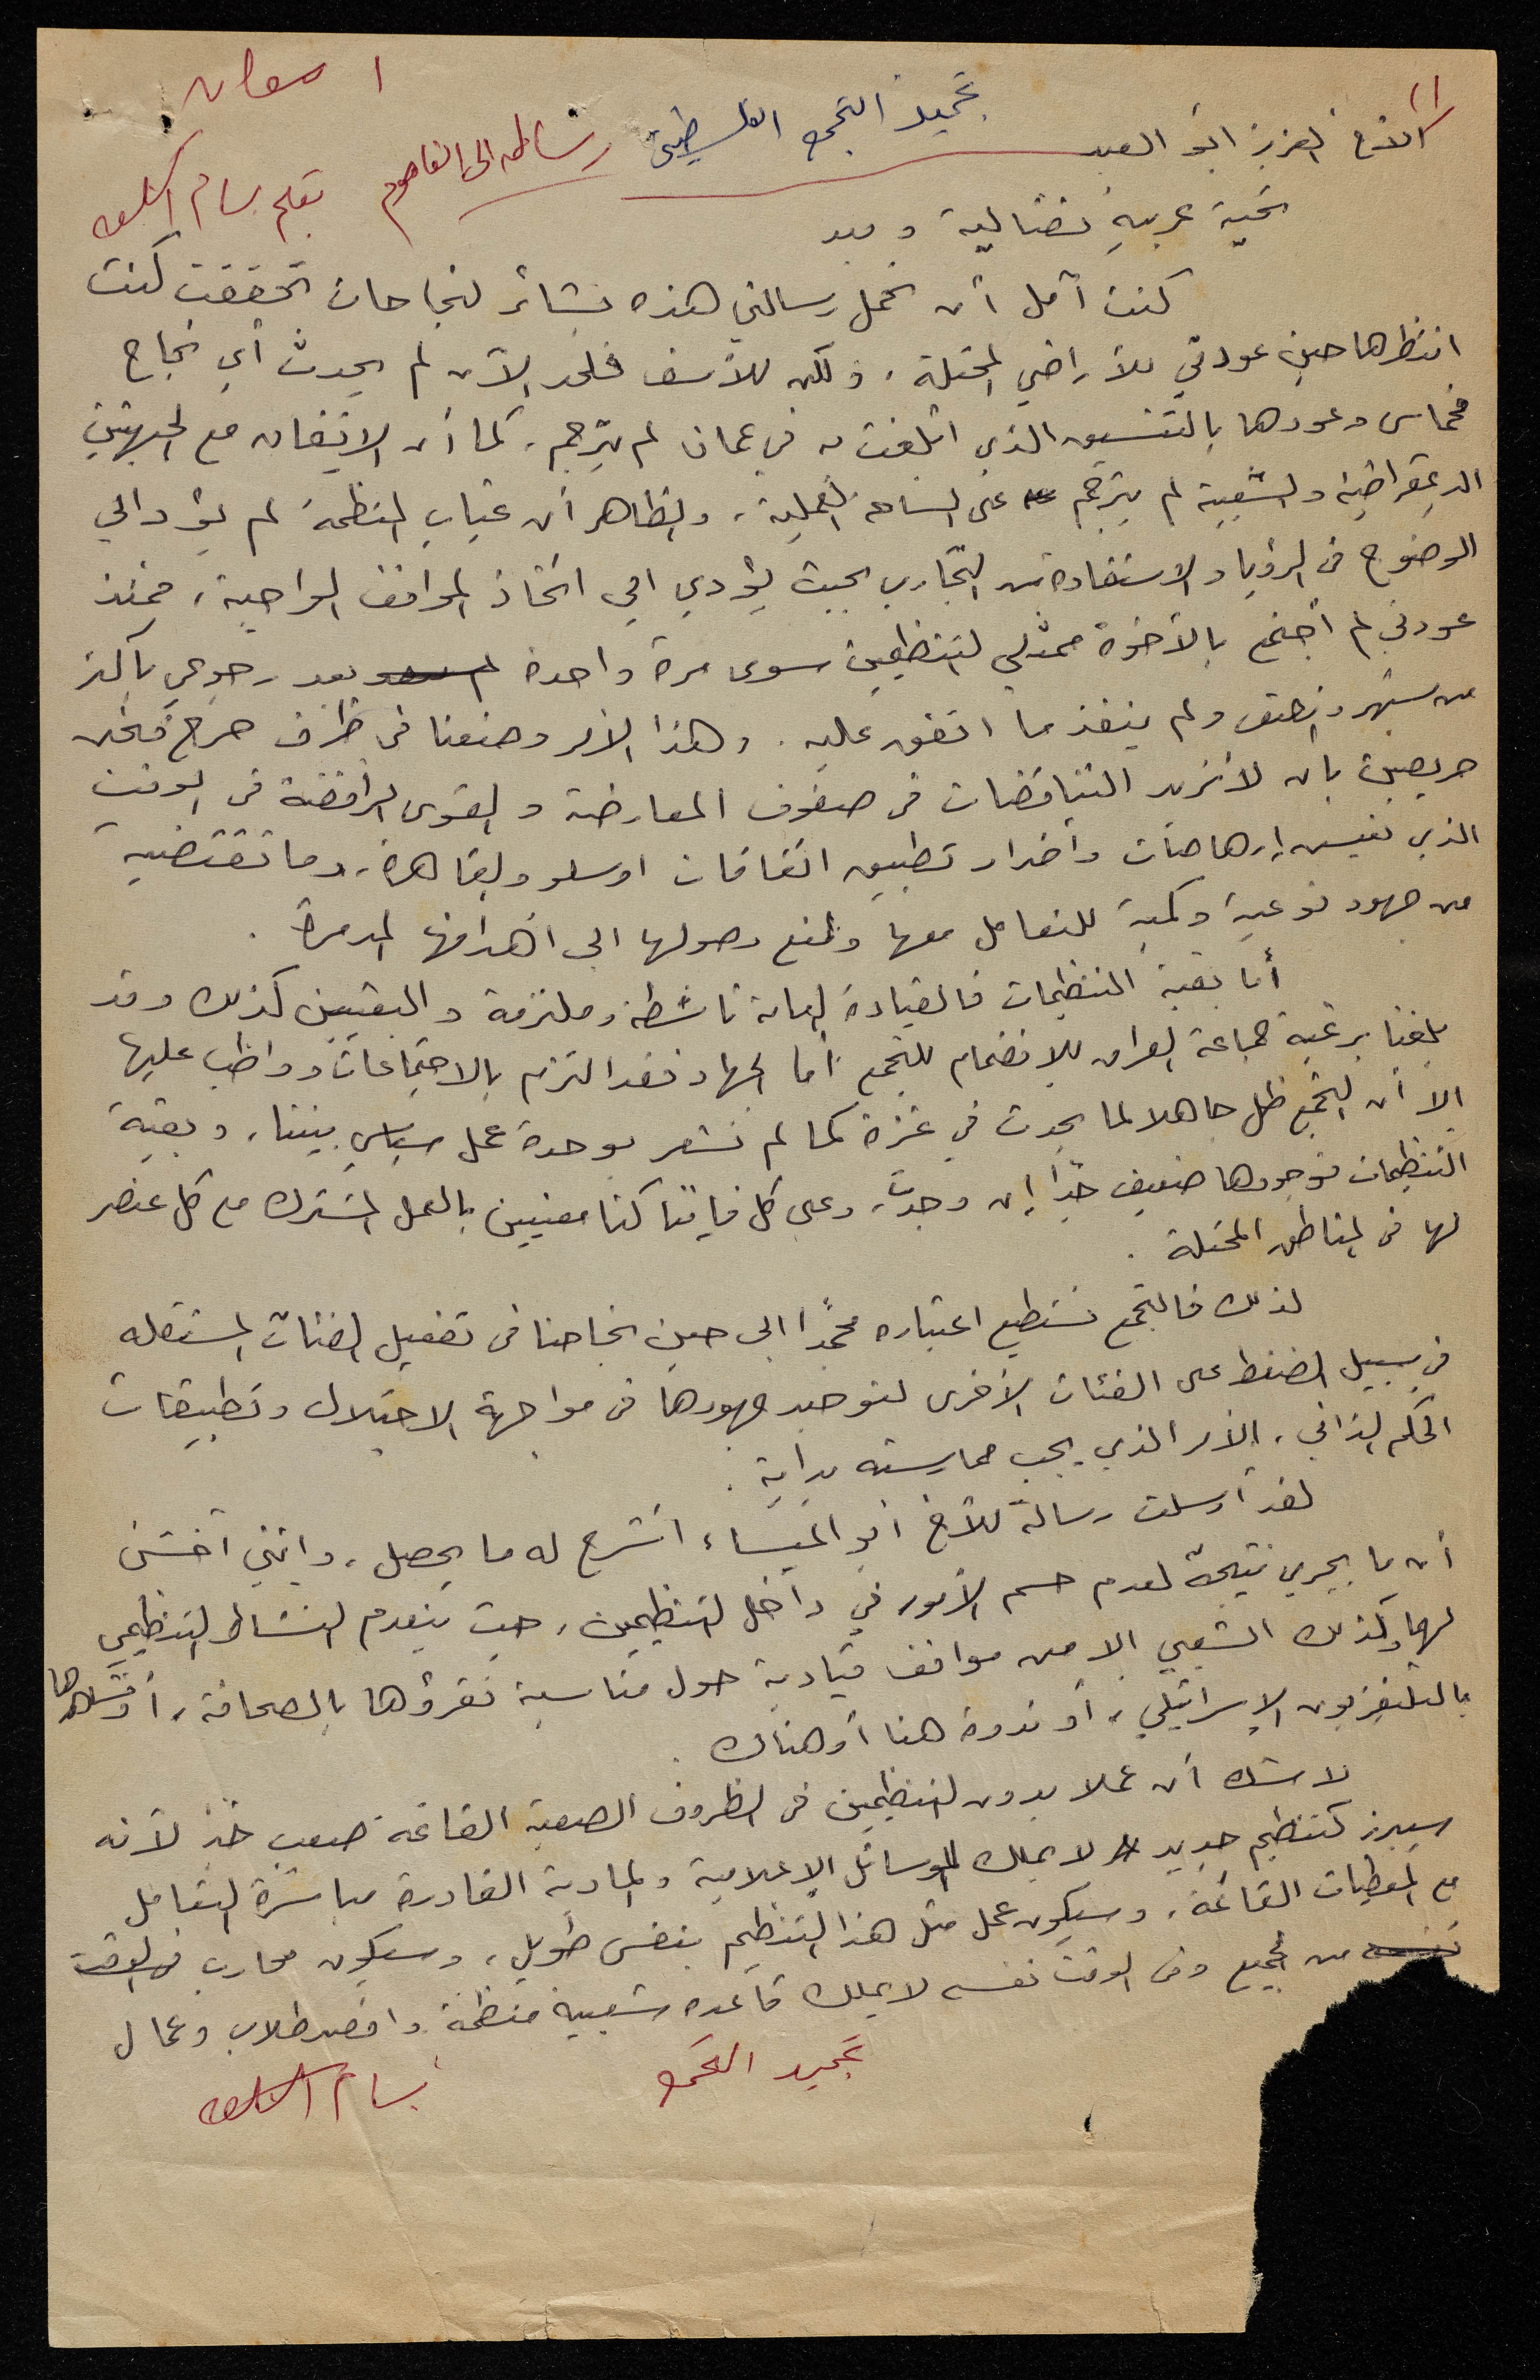 تجميد التجمع الفلسطيني
بقلم بسام الشكعة
الأخ العزيز أبو العبد
تحية عربية نضالية وبعد
كنت آمل أن تحمل رسالتي هذه بشائر لنجاحات تحققت كنت
انتظرها حين عودتي للأراضي المحتلة، ولكن للأسف فلحد الآن لم يحدث أي نجاح
فحماس وعودها بالتنسيق الذي ابلغت به في عمان لم يترجم، كما أن الاتفاق مع الجبهتين
الديمقراطية والشعبية لم يترجم على الساحة العملية، والظاهر أن غياب المنظمة لم يؤد الى
الوضوح في الرؤيا والاستفادة من التجارب بحيث يؤدي الى اتخاذ المواقف الواجبة، فمنذ
عودتي لم أجتمع بالأخوة ممثلي التنظيمين سوى مرة واحدة بعد رجوعي بأكثر
من شهر ونصف ولم ينفذ ما اتفق عليه. وهذا الأمر وضعنا في ظرف حرج فنحن
حريصين بان لا نزيد التناقضات في صفوف المعارضة والقوى الرافضة في الوقت
الذي نعيس إرهاصات وأضرار تطبيق اتفاقات اوسلو والقاهرة، وما تقتضيه
من جهود نوعية وكمية للتعامل معها ولمنع وصولها الى أهدافها المدمرة.
أما بقية التنظيمات فالقيادة العامة ناشطة وملتزمة والبعثيين كذلك وقد
بلغنا برغبة جماعة العراق للانضمام للتجمع أما الجهاد فقد التزم بالاجتماعات وواظب عليها
الا أن التجمع ظل جاهلا لما يحدث في غزة كما لم نشعر بوحدة عمل سياسي بيننا، وبقية
التنظيمات فوجودها ضعيف جدا إن وجدت، وعلى كل فإننا كنا معنيين بالعمل المشترك مع كل عنصر
لها في المناطق المحتلة.
لذلك فالتجمع نستطيع اعتباره مجمدا الى حين نجاحنا في تفعيل الفئات المستقلة
في سبيل الضغط على الفئات الأخرى لتوحيد جهودها في مواجهة الاحتلال وتطبيقات
الحكم الذاتي، الأمر الذي يجب ممارسته بداية.
لقد أرسلت رسالة للأخ أبو الميساء اشرح له ما يحصل، وانني أخشى
أن ما يجري نتيجة لعدم حسم الأمور في داخل التنظيمين، حيث ينعدم النشاط التنظيمي
لهما وكذلك الشعبي الا من مواقف قيادية حول مناسبة نقرؤها بالصحافة، أو نشاهدها
بالتلفزيون الإسرائيلي، أو ندوة هنا أو هناك.
لا شك أن عملا بدون التنظيمين في الظروف الصعبة القائمة صعب جدا لأنه
سيبرز كتنظيم جديد لا يملك الوسائل الإعلامية والمادية القادرة مباشرة التعامل
مع المعطيات القائمة، وسيكون عمل مثل هذا التنظيم بنفس طويل، وسيكون محارب
من الجميع وفي الوقت نفسه لا يملك قاعدة شعبية منظمة واقصد طلاب وعمال
تجميد التجمع
بسام الشكعة